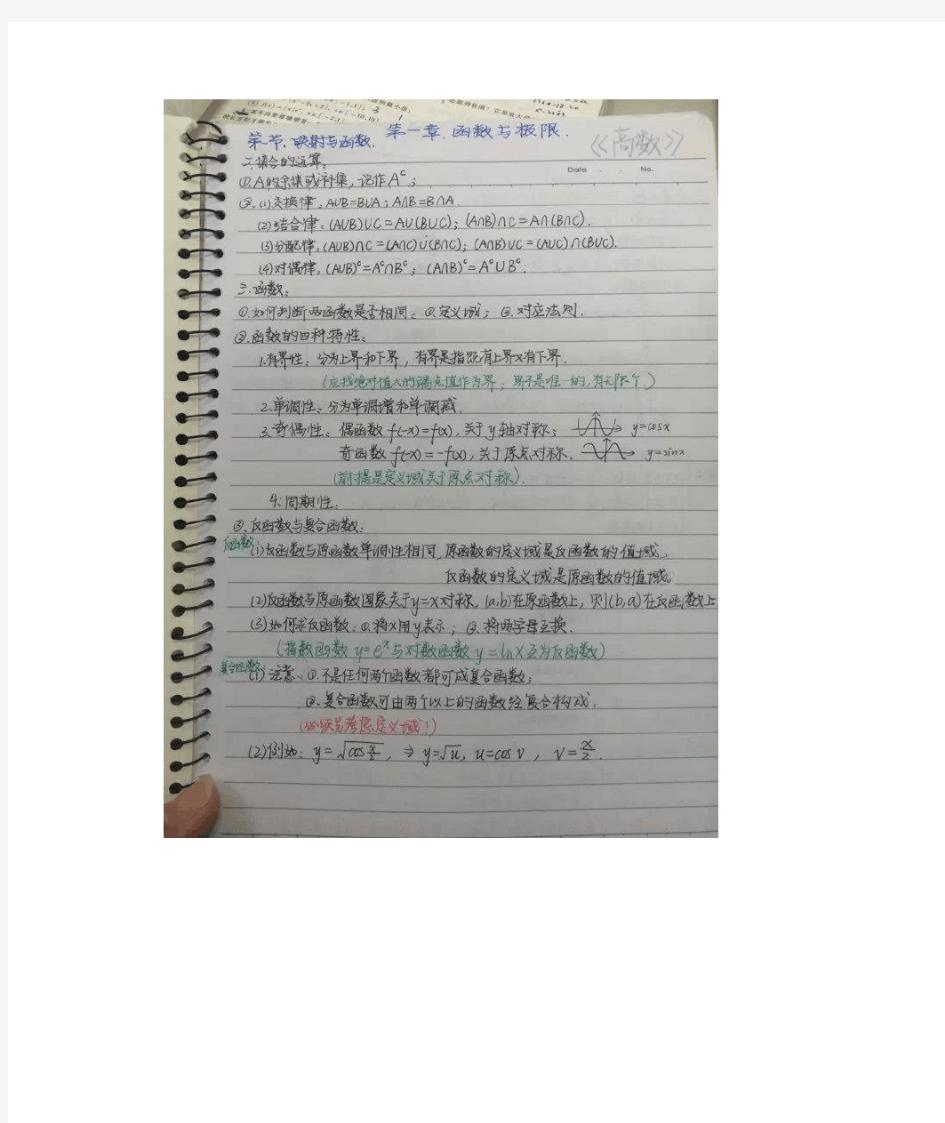 第一章.函数与极限.
《高数》
第一节.映射与函数.
Date . . No.
二.集合的运算:
①.A的余集或补集,记作Aᶜ;
②.(1)交换律:A∪B=B∪A;A∩B=B∩A.
(2)结合律:(A∪B)∪C=A∪(B∪C);(A∩B)∩C=A∩(B∩C).
(3)分配律:(A∪B)∩C=(A∩C)∪(B∩C);(A∩B)∪C=(A∪C)∩(B∪C).
(4)对偶律:(A∪B)ᶜ=Aᶜ∩Bᶜ;(A∩B)ᶜ=Aᶜ∪Bᶜ.
三.函数:
①.如何判断两函数是否相同:①.定义域;②.对应法则.
②.函数的四种特性:
1.有界性:分为上界和下界,有界是指既有上界又有下界.
(应找绝对值大的端点值作为界,界不是唯一的,有无限个)
2.单调性:分为单调增和单调减.
3.奇偶性:偶函数f(-x)=f(x),关于y轴对称; y=cosx
奇函数f(-x)=-f(x),关于原点对称. y=sinx
(前提是定义域关于原点对称).
4.周期性.
③.反函数与复合函数:
反函数:(1)反函数与原函数单调性相同,原函数的定义域是反函数的值域,
反函数的定义域是原函数的值域。
(2)反函数与原函数图象关于y=x对称,(a,b)在原函数上,则(b,a)在反函数上
(3)如何求反函数:①.将x用y表示;②.将两字母互换.
(指数函数y=eˣ与对数函数y=lnx互为反函数)
复合函数:(1)注意:①.不是任何两个函数都可成复合函数;
②.复合函数可由两个以上的函数经复合构成.
(必须先考虑定义域!)
(2)例如:y=√cos x/2, ⇒ y=√u, u=cosv, v=x/2.